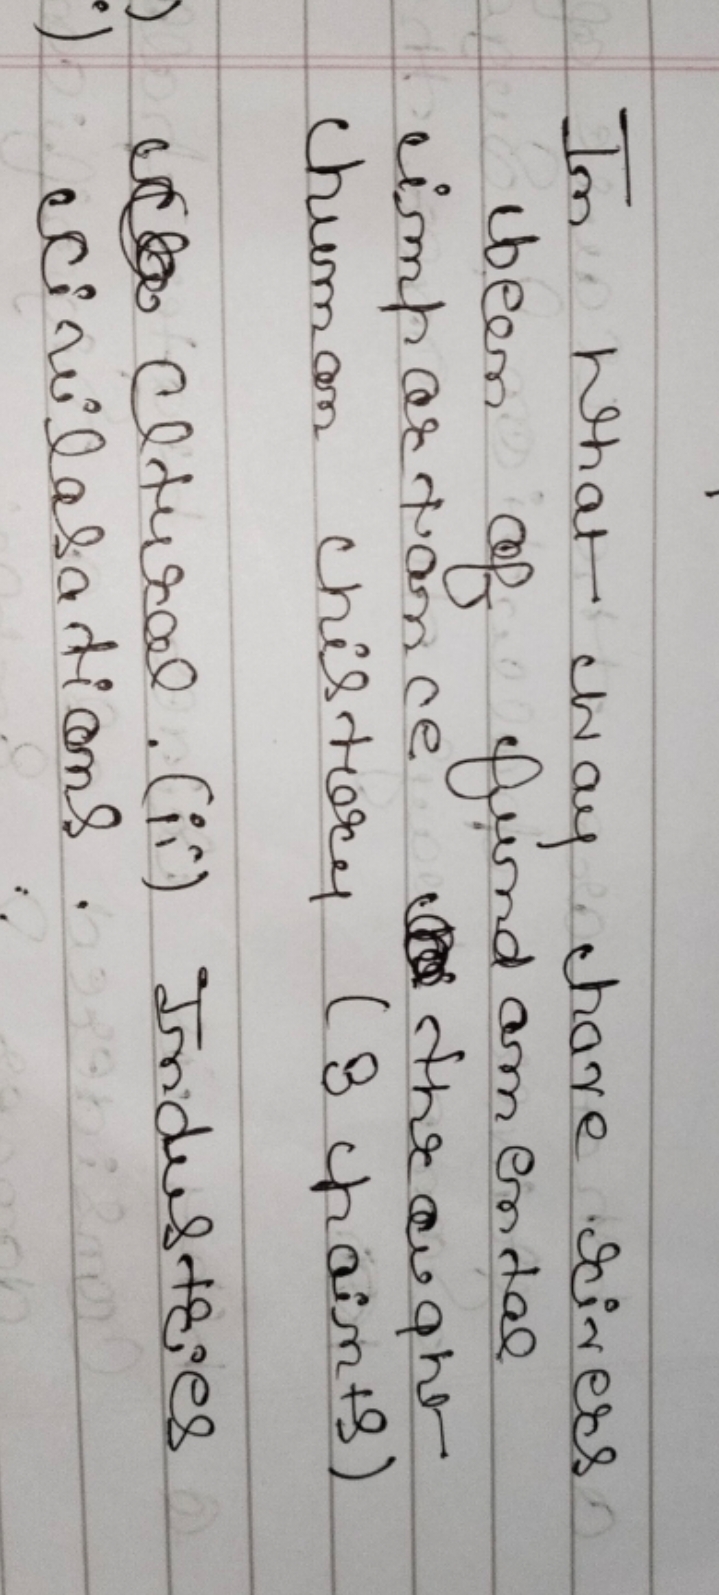 In what way have rivers
been of fundamental
importance throught
human history (3 points)
i) Cltural. (ii) Industries
i) civilasations.